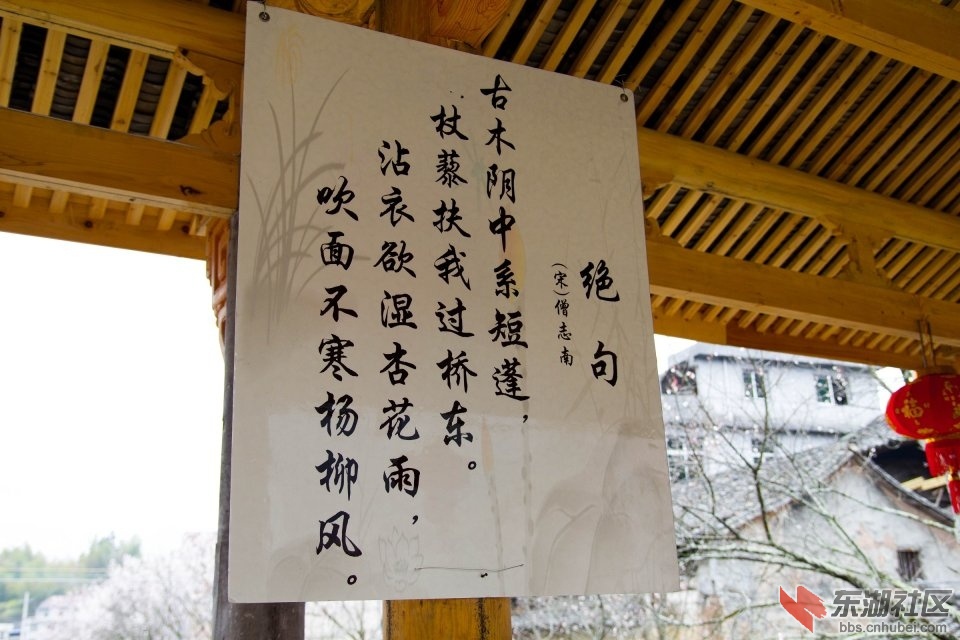 绝句
(宋)僧志南
古木阴中系短蓬，
杖藜扶我过桥东。
沾衣欲湿杏花雨，
吹面不寒杨柳风。
福
东湖社区
bbs.cnhubei.com